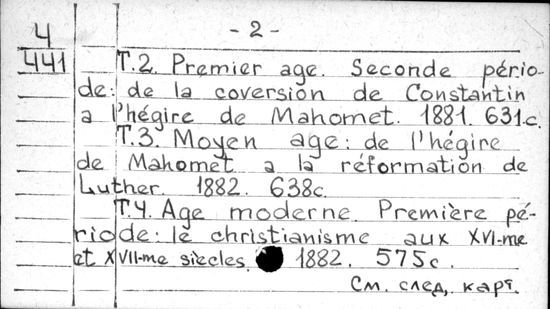 - 2 -
4
441
T.2. Premier age. Seconde pério-
de: de la coversion de Constantin
a l'hégire de Mahomet. 1881. 631c.
T.3. Moyen age: de l'hégire
de Mahomet a la réformation de
Luther. 1882. 638c.
T.4. Age moderne. Première pé-
riode: le christianisme aux XVI-me
et XVII-me siecles. 1882. 575c.
См. след. карт.